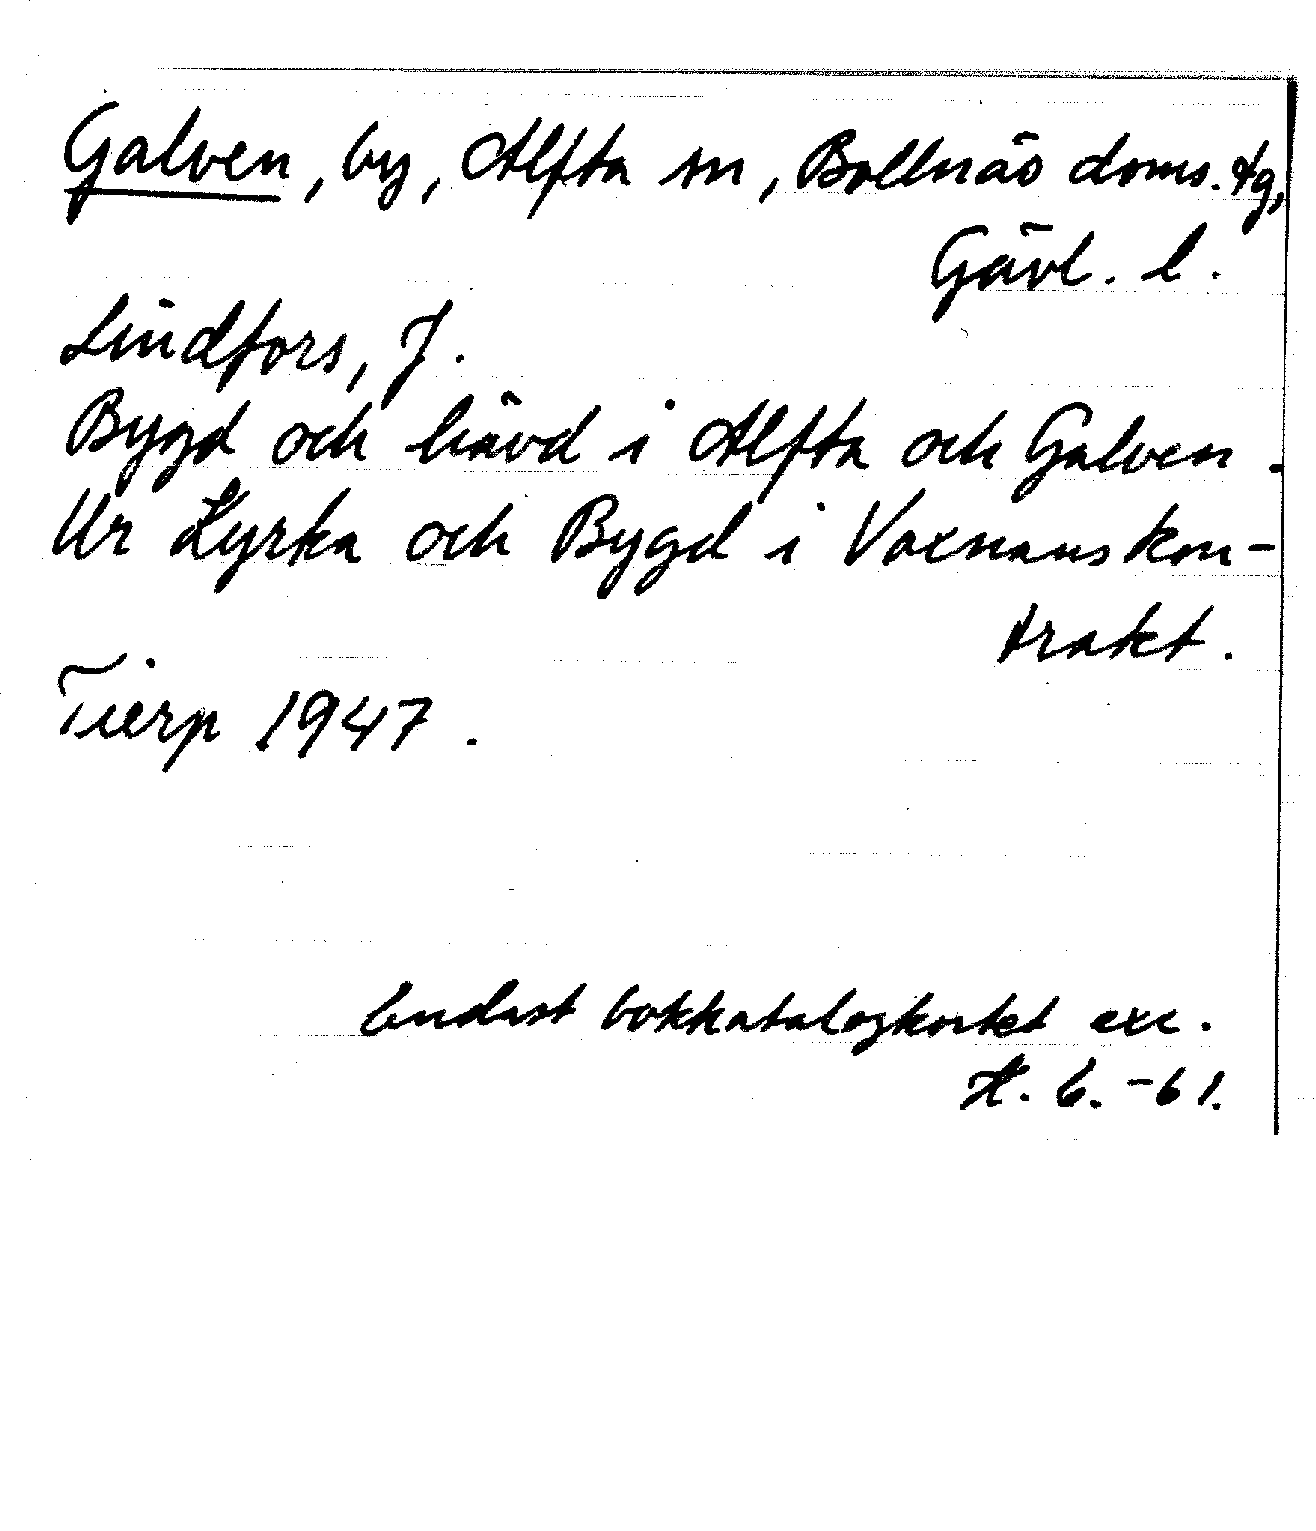 Galven, by, Alfta sn, Bollnäs doms. tg,
Gävl. l.
Lindfors, J.
Bygd och hävd i Alfta och Galven.
Ur Kyrka och Bygd i Voxnans kon-
trakt.
Tierp 1947.
Endast bokkatalogkortet exc.
6. -61.